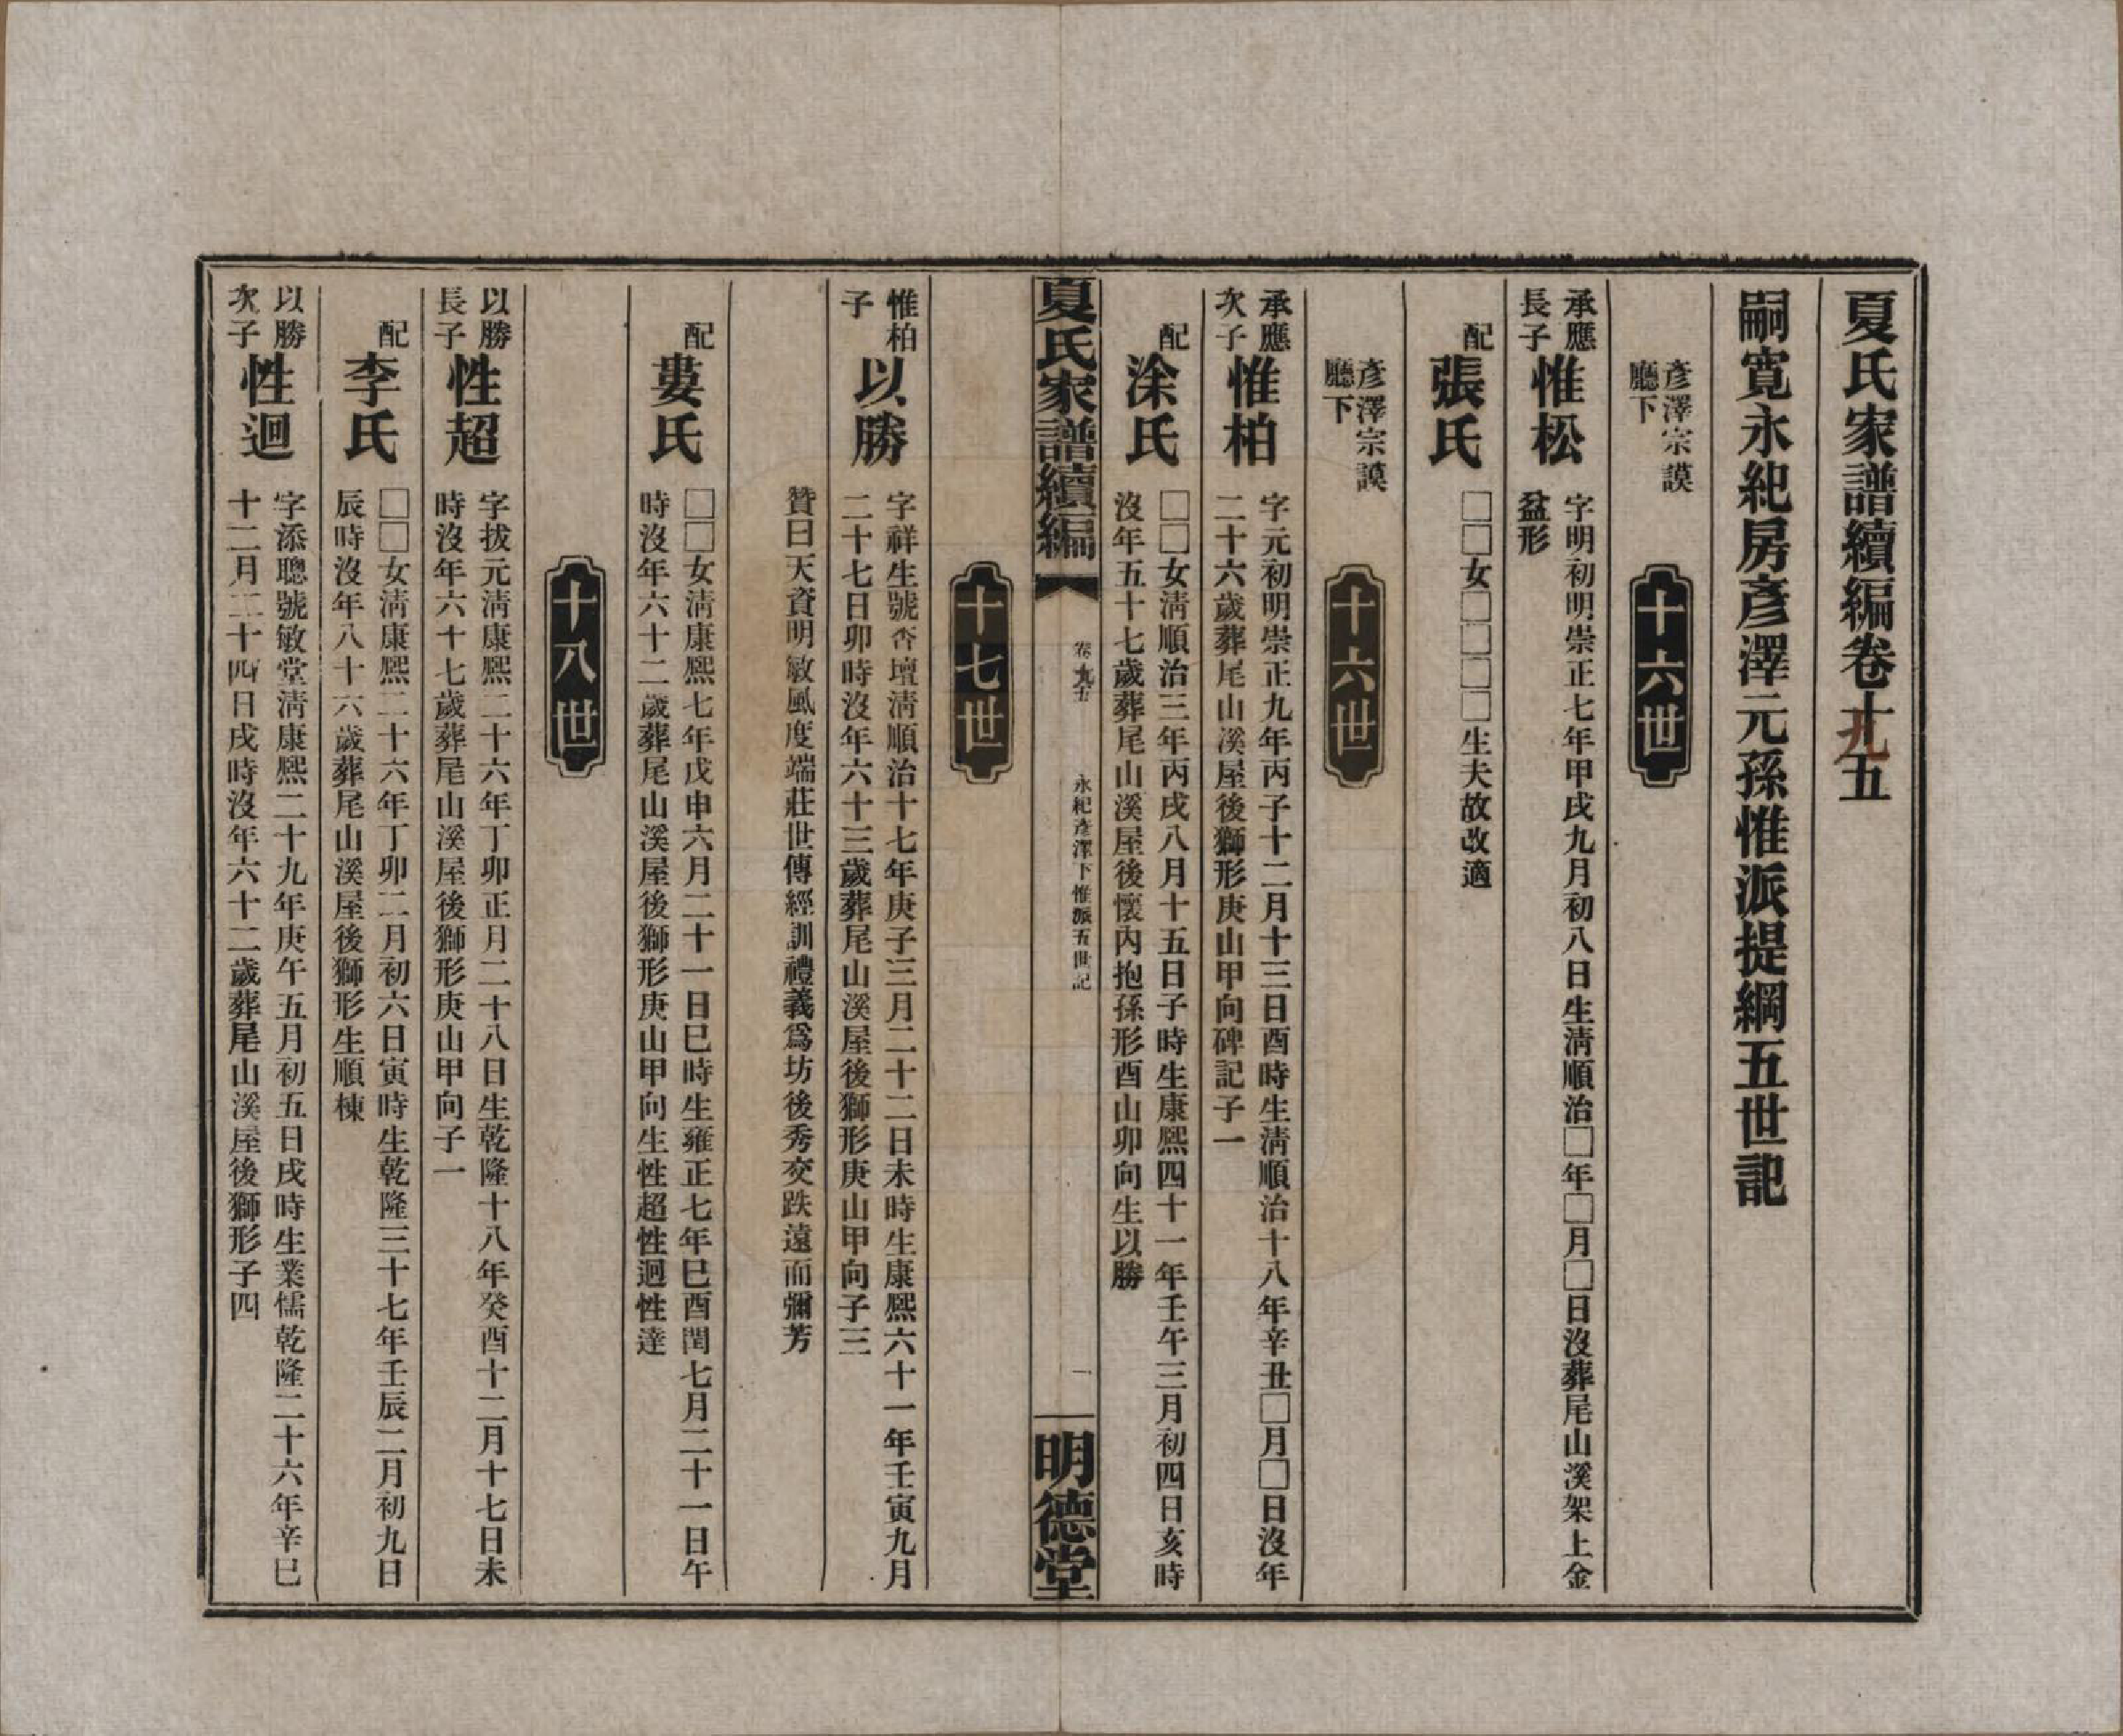 夏氏家譜續編卷十九五
嗣寬永紀房彥澤元孫惟派提綱五世記
彥澤宗謨
廳下
十六世
承應
長子
惟松
字明初明崇正七年甲戌九月初八日生淸順治□年□月□日沒葬尾山溪架上金
盆形
配
張氏
□□女□□□□生夫故改適
彥澤宗謨
廳下
十六世
承應
次子
惟柏
字元初明崇正九年丙子十二月十三日酉時生淸順治十八年辛丑□月□日沒年
二十六歲葬尾山溪屋後獅形庚山甲向碑記子一
配
涂氏
□□女淸順治三年丙戌八月十五日子時生康熙四十一年壬午三月初四日亥時
沒年五十七歲葬尾山溪屋後懷內抱孫形酉山卯向生以勝
夏氏家譜續編
永紀彥澤下惟派五世記
一
明德堂
十七世
惟柏
子
以勝
字祥生號杏壇淸順治十七年庚子三月二十二日未時生康熙六十一年壬寅九月
二十七日卯時沒年六十三歲葬尾山溪屋後獅形庚山甲向子三
贊曰天資明敏風度端莊世傳經訓禮義爲坊後秀交跌遠而彌芳
配
婁氏
□□女淸康熙七年戊申六月二十一日巳時生雍正七年巳酉閏七月二十一日午
時沒年六十二歲葬尾山溪屋後獅形庚山甲向生性超性迴性達
十八世
以勝
長子
性超
字拔元淸康熙二十六年丁卯正月二十八日生乾隆十八年癸酉十二月十七日未
時沒年六十七歲葬尾山溪屋後獅形庚山甲向子一
配
李氏
□□女淸康熙二十六年丁卯二月初六日寅時生乾隆三十七年壬辰二月初九日
辰時沒年八十六歲葬尾山溪屋後獅形生順棟
以勝
次子
性迴
字添聰號敏堂淸康熙二十九年庚午五月初五日戌時生業儒乾隆二十六年辛巳
十二月二十四日戌時沒年六十二歲葬尾山溪屋後獅形子四